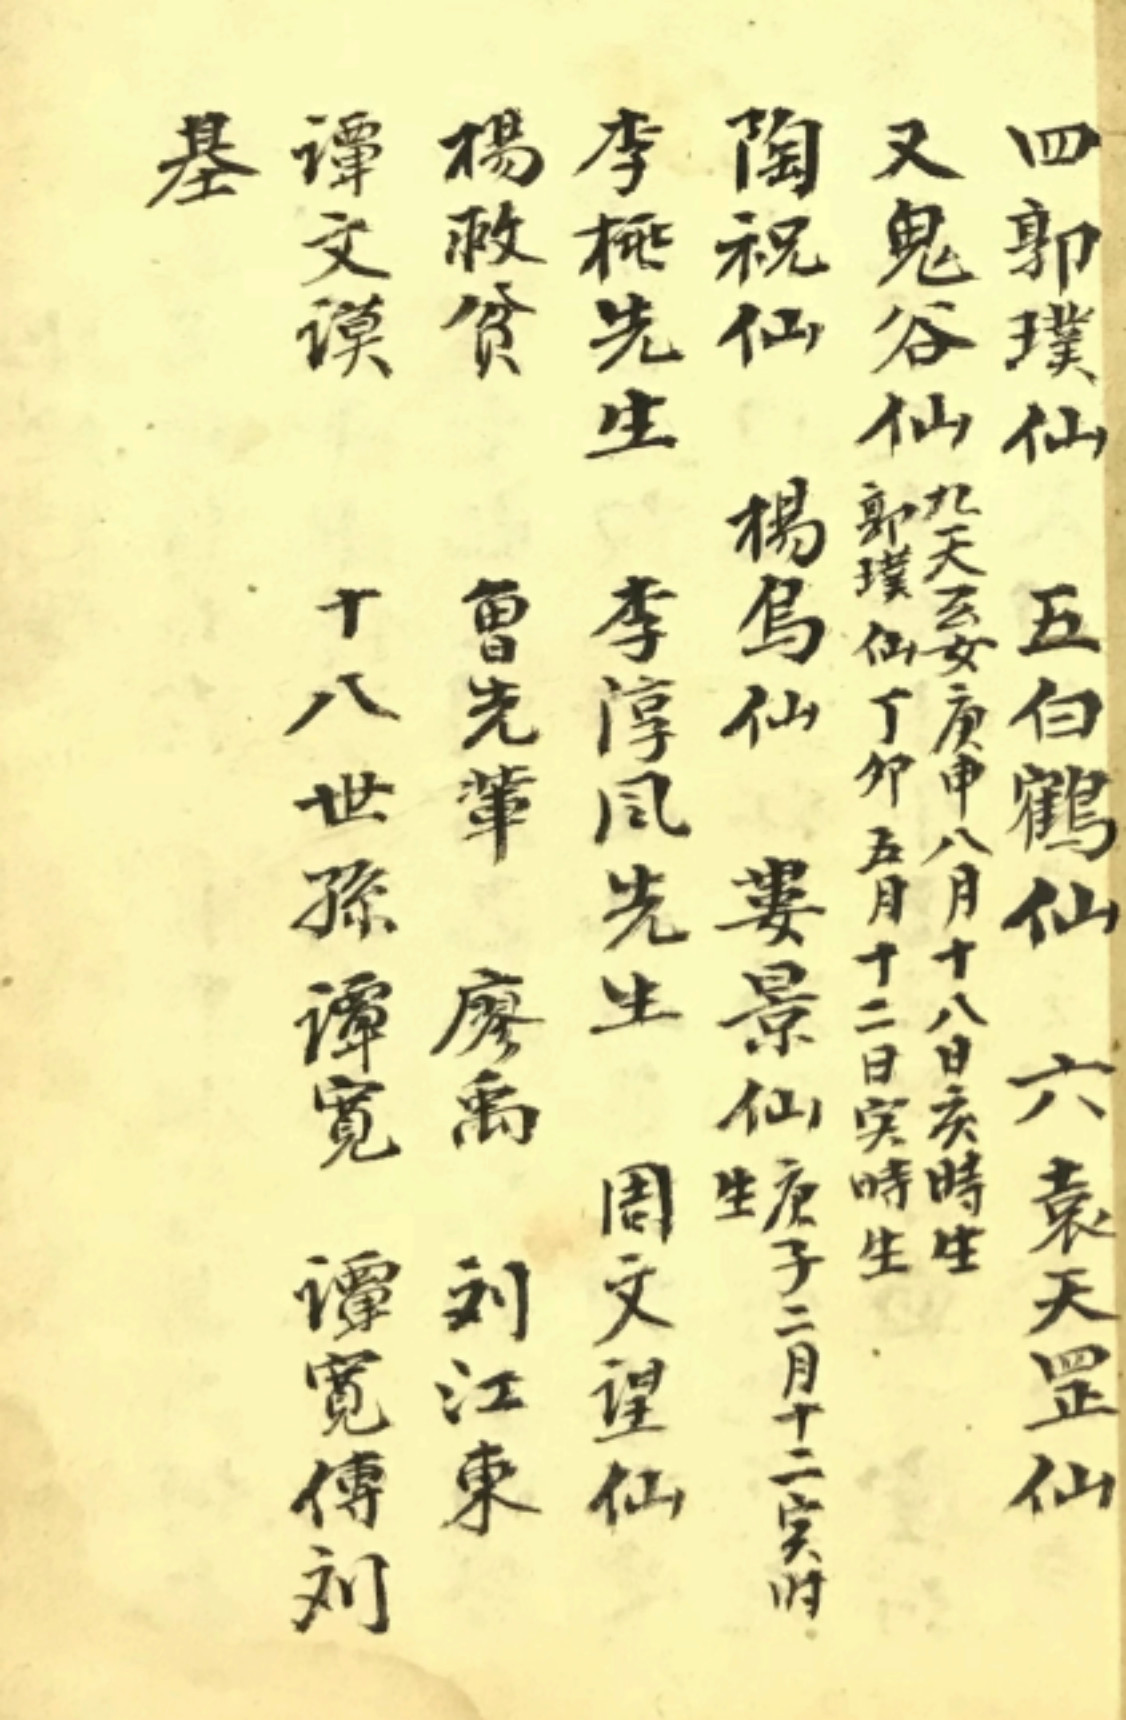 四郭璞仙 五白鶴仙 六袁天罡仙
又鬼谷仙 九天玄女庚申八月十八日亥時生
郭璞仙丁卯五月十二日寅時生
陶祝仙 楊烏仙 婁景仙 庚子二月十二寅时
生
李 先生 李淳风先生 周文望仙
楊救贫 曾先輩 廖禹 刘江東
譚文謨 十八世孫譚寬 譚寬傳刘
基